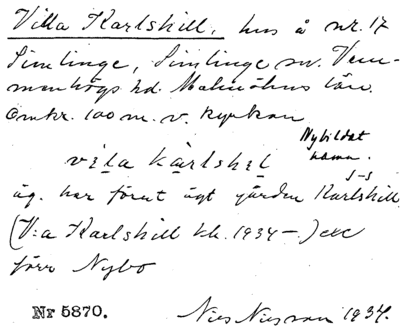 Villa Karlshill, hus å nr. 17
Simlinge, Simlinge sn. Vem-
menhögs hd. Malmöhus län.
Omkr. 100 m. v. kyrkan
Nybildat
namn.
vila kạrlshil
äg. har förut ägt gården Karlshill
(V:a Karlshill kk. 1934–)
förr Nybo
Nr 5870.
Nils Nilsson 1934.